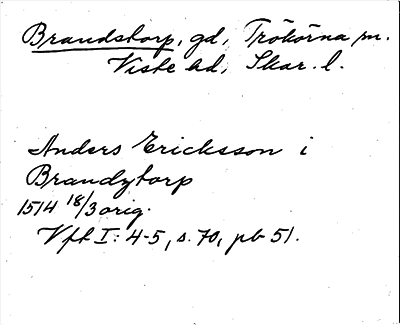 Brandstorp, gd, Trökörna sn.
Viste hd, Skar. l.
Anders Ericksson i
Brandztorp
1514 18/3 orig.
Vfl I: 4-5, s. 70, pb 51.